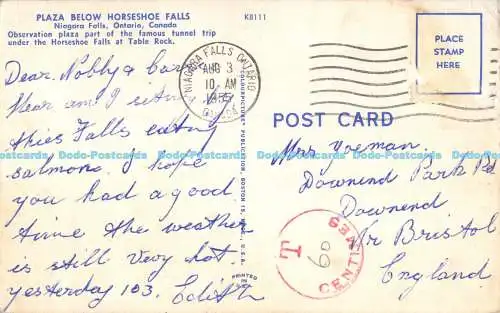 PLAZA BELOW HORSESHOE FALLS
Niagara Falls, Ontario, Canada
Observation plaza part of the famous tunnel trip
under the Horseshoe Falls at Table Rock.
K8111
Dear Nobby &
Hear am I
this Falls eating
salmons. I hope
you had a good
time the weather
is still very hot.
yesterday 103. Edith
NIAGARA FALLS ONTARIO
AUG 3
10 AM
1955
PLACE
STAMP
HERE
POST CARD
Mrs Yoeman.
Downend Park Rd
Downend
Nr Bristol
England
T
60
CENTIMES
COLOURPICTURE PUBLICATION BOSTON 15, MASS., U.S.A.
PRINTED
Dodo-Postcards Dodo-Postcards Dodo-Postcards Dodo-Postcards Dodo-Postcards